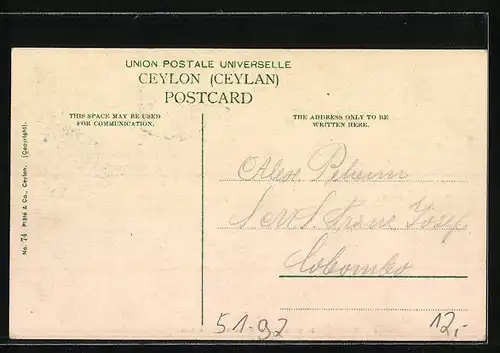 UNION POSTALE UNIVERSELLE
CEYLON (CEYLAN)
POSTCARD
THIS SPACE MAY BE USED
FOR COMMUNICATION.
THE ADDRESS ONLY TO BE
WRITTEN HERE.
No. 74 Plâté & Co., Ceylon. (Copyright).
Alex.
Franz Josef
Colombo
51-92
12,-